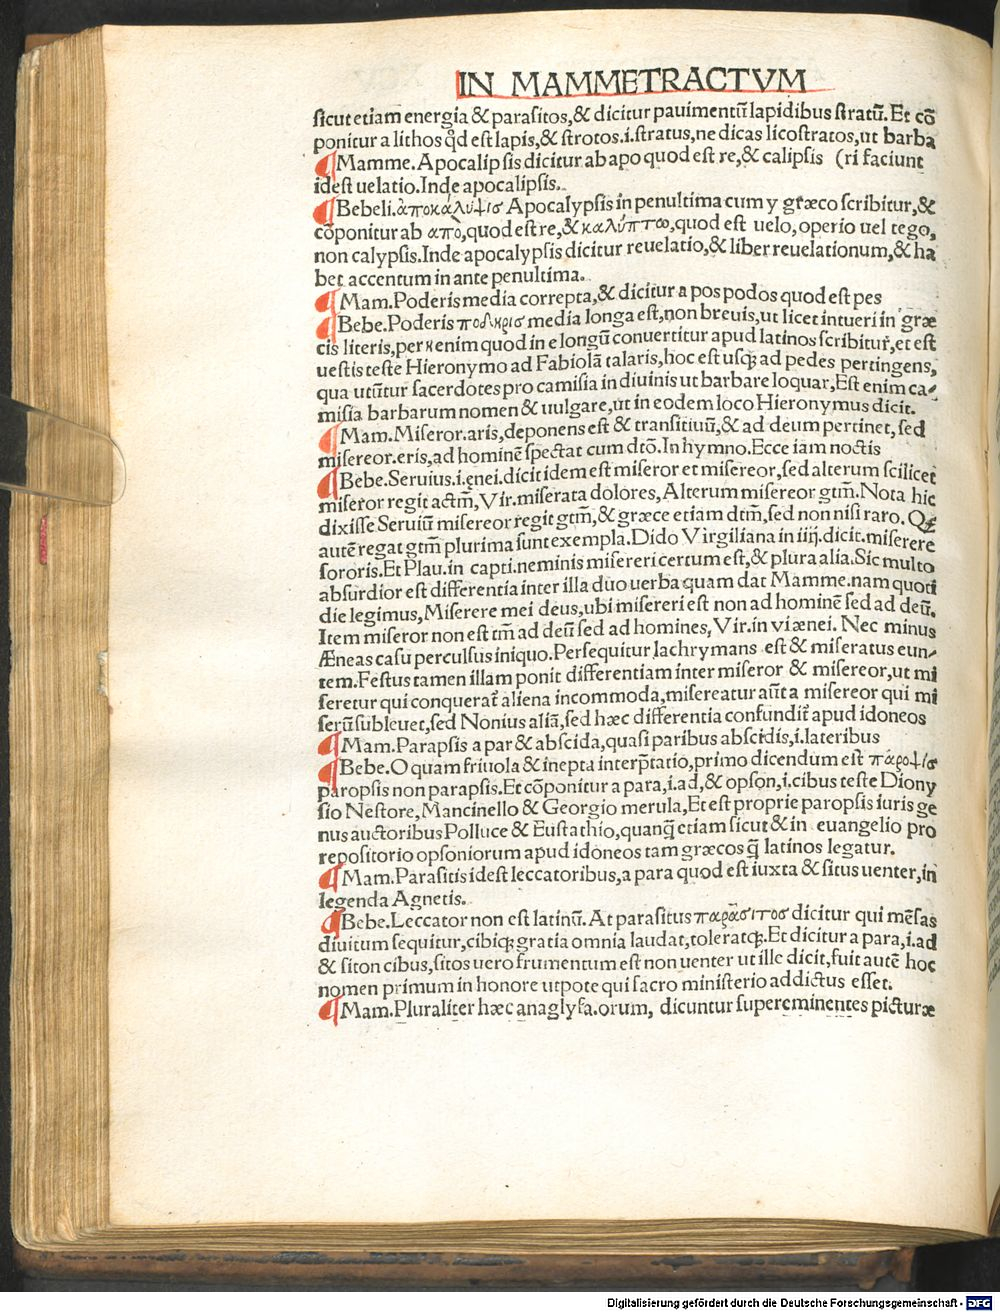 IN MAMMETRACTVM
sicut etiam energia & parasitos,& dicitur pauimentū lapidibus stratū. Et cō
ponitur a lithos qd̄ est lapis,& strotos.i.stratus,ne dicas licostratos,ut barba
¶Mamme. Apocalipsis dicitur ab apo quod est re,& calipsis (ri faciunt
idest uelatio.Inde apocalipsis.
¶Bebeli.ἀποκάλυψισ Apocalypsis in penultima cum y græco scribitur,&
cōponitur ab απὸ,quod est re,& καλύπτω,quod est uelo,operio uel tego,
non calypsis.Inde apocalypsis dicitur reuelatio,& liber reuelationum,& ha
bet accentum in ante penultima.
¶Mam.Poderis media correpta,& dicitur a pos podos quod est pes
¶Bebe.Poderis ποδηρισ media longa est,non breuis,ut licet intueri in græ
cis literis,per η enim quod in e longū conuertitur apud latinos scribitur̄,et est
uestis teste Hieronymo ad Fabiolā talaris,hoc est usq; ad pedes pertingens,
qua utūtur sacerdotes pro camisia in diuinis ut barbare loquar,Est enim ca-
misia barbarum nomen & uulgare,ut in eodem loco Hieronymus dicit.
¶Mam.Miseror.aris,deponens est & transitiuū,& ad deum pertinet,sed
misereor.eris,ad hominē spectat cum dtō.In hymno.Ecce iam noctis
¶Bebe.Seruius.i.ęnei.dicit idem est miseror et misereor,sed alterum scilicet
miseror regit actm̄,Vir.miserata dolores,Alterum misereor gtm̄.Nota hic
dixisse Seruiū misereor regit gtm̄,& græce etiam dtm̄,sed non nisi raro. Qȝ
autē regat gtm̄ plurima sunt exempla.Dido Virgiliana in iiij.dicit.miserere
sororis.Et Plau.in capti.neminis misereri certum est,& plura alia.Sic multo
absurdior est differentia inter illa duo uerba quam dat Mamme.nam quoti
die legimus,Miserere mei deus,ubi misereri est non ad hominē sed ad deū.
Item miseror non est tm̄ ad deū sed ad homines,Vir.in vi ænei. Nec minus
Æneas casu perculsus iniquo.Persequitur lachrymans est & miseratus eun-
tem.Festus tamen illam ponit differentiam inter miseror & misereor,ut mi
seretur qui conquerat̄ aliena incommoda,misereatur aūt a misereor qui mi
serū subleuet,sed Nonius aliā,sed hæc differentia confundit̄ apud idoneos
¶Mam.Parapsis a par & abscida,quasi paribus abscidis,i.lateribus
¶Bebe.O quam friuola & inepta interp̄tatio,primo dicendum est πάροψισ
paropsis non parapsis.Et cōponitur a para,i.ad,& opson,i.cibus teste Diony
sio Nestore,Mancinello & Georgio merula,Et est proprie paropsis iuris ge
nus auctoribus Polluce & Eustathio,quanq̄ etiam sicut & in euangelio pro
repositorio opsoniorum apud idoneos tam græcos q̄ latinos legatur.
¶Mam.Parasitis idest leccatoribus,a para quod est iuxta & situs uenter,in
legenda Agnetis.
¶Bebe.Leccator non est latinū. At parasitus παράσιτοσ dicitur qui mēsas
diuitum sequitur,cibiq; gratia omnia laudat,toleratq;.Et dicitur a para,i.ad
& siton cibus,sitos uero frumentum est non uenter ut ille dicit,fuit autē hoc
nomen primum in honore utpote qui sacro ministerio addictus esset.
¶Mam.Pluraliter hæc anaglyfa.orum, dicuntur supereminentes picturæ
Digitalisierung gefördert durch die Deutsche Forschungsgemeinschaft - DFG